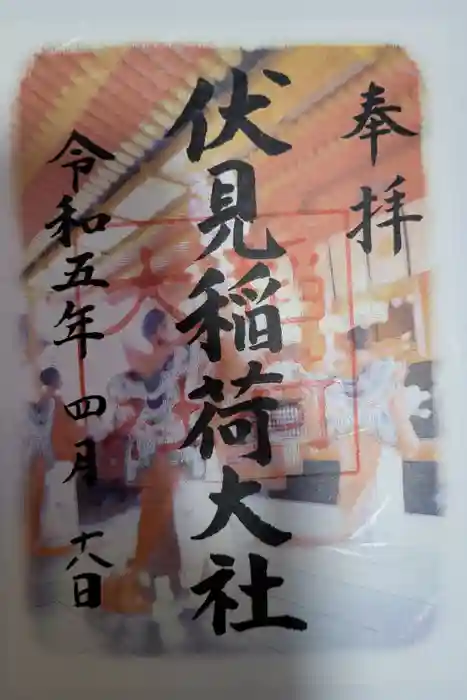 奉拝
伏見稲荷大社
令和五年 四月 十八日